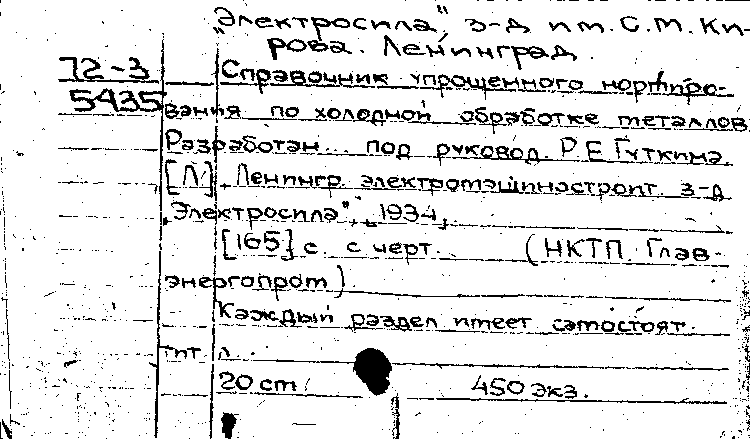 „Электросила", з-д им. С.М. Ки-
рова. Ленинград.
72-3
Справочник упрощенного нормиро-
5435
вания по холодной обработке металлов
Разработан... под руковод. Р.Е. Гуткина.
[Л], Ленингр. электромашиностроит. з-д
„Электросила", 1934,
[165] с. с черт. (НКТП. Глав-
энергопром).
Каждый раздел имеет самостоят.
тит. л.
20 см. 450 экз.